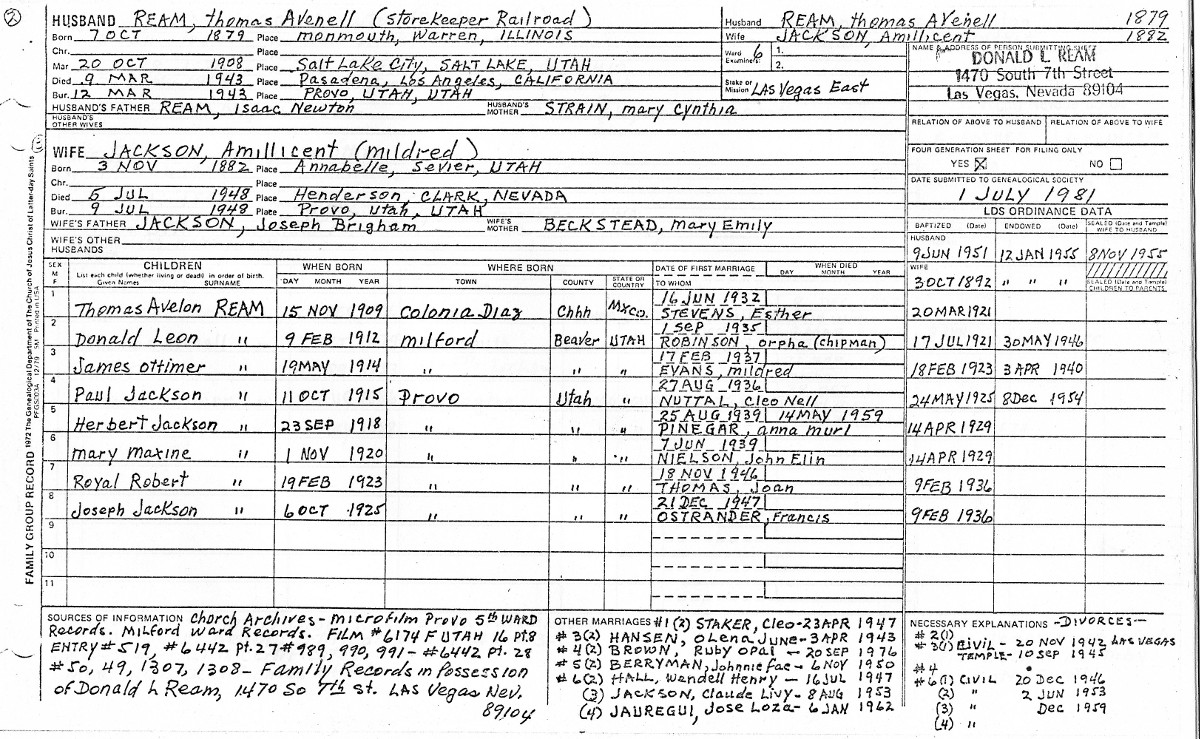 ②
HUSBAND REAM, Thomas Avenell (Storekeeper Railroad)
Born 7 OCT 1879 Place Monmouth, Warren, ILLINOIS
Chr. Place
Mar 20 OCT 1908 Place Salt Lake City, SALT LAKE, UTAH
Died 9 MAR 1943 Place Pasadena, Los Angeles, CALIFORNIA
Bur. 12 MAR 1943 Place PROVO, UTAH, UTAH
HUSBAND'S FATHER REAM, Isaac Newton HUSBAND'S MOTHER STRAIN, Mary Cynthia
HUSBAND'S OTHER WIVES
Husband REAM, Thomas Avenell 1879
Wife JACKSON, Amillicent 1882
Ward 6
Examiners: 1.
2.
Stake or Mission LAS Vegas East
NAME & ADDRESS OF PERSON SUBMITTING SHEET
DONALD L. REAM
1470 South 7th Street
Las Vegas, Nevada 89104
RELATION OF ABOVE TO HUSBAND RELATION OF ABOVE TO WIFE
FOUR GENERATION SHEET FOR FILING ONLY
YES ☒ NO ☐
DATE SUBMITTED TO GENEALOGICAL SOCIETY
1 JULY 1981
WIFE JACKSON, Amillicent (Mildred)
Born 3 NOV 1882 Place Annabelle, Sevier, UTAH
Chr. Place
Died 5 JUL 1948 Place Henderson, CLARK, NEVADA
Bur. 9 JUL 1948 Place Provo, Utah, UTAH
WIFE'S FATHER JACKSON, Joseph Brigham WIFE'S MOTHER BECKSTEAD, Mary Emily
WIFE'S OTHER HUSBANDS
LDS ORDINANCE DATA
BAPTIZED (Date) ENDOWED (Date) SEALED (Date and Temple) WIFE TO HUSBAND
HUSBAND
9 JUN 1951 12 JAN 1955 8 NOV 1955
WIFE
3 OCT 1892 " " "
SEALED (Date and Temple) CHILDREN TO PARENTS
SEX M F CHILDREN WHEN BORN WHERE BORN DATE OF FIRST MARRIAGE WHEN DIED
List each child (whether living or dead) in order of birth. Given Names SURNAME DAY MONTH YEAR TOWN COUNTY STATE OR COUNTRY TO WHOM DAY MONTH YEAR
1 Thomas Avelon REAM 15 NOV 1909 Colonia Diaz Chhh MXCO. 16 JUN 1932 STEVENS, Esther 20 MAR 1921
2 Donald Leon " 9 FEB 1912 Milford Beaver UTAH 1 SEP 1935 ROBINSON, Orpha (Chipman) 17 JUL 1921 30 MAY 1946
3 James Ottimer " 19 MAY 1914 " " " 17 FEB 1937 EVANS, Mildred 18 FEB 1923 3 APR 1940
4 Paul Jackson " 11 OCT 1915 Provo Utah " 27 AUG 1936 NUTTAL, Cleo Nell 24 MAY 1925 8 Dec 1954
5 Herbert Jackson " 23 SEP 1918 " " " 25 AUG 1939 14 MAY 1959 PINEGAR, Anna Murl 14 APR 1929
6 Mary Maxine " 1 NOV 1920 " " " 7 JUN 1939 NIELSON, John Elin 14 APR 1929
7 Royal Robert " 19 FEB 1923 " " " 18 NOV 1946 THOMAS, Joan 9 FEB 1936
8 Joseph Jackson " 6 OCT 1925 " " " 21 DEC 1947 OSTRANDER, Francis 9 FEB 1936
9
10
11
SOURCES OF INFORMATION Church Archives - Microfilm Provo 5th WARD
Records. Milford Ward Records. FILM #6174 F UTAH 16 pt. 8
ENTRY #519, #6442 pt. 27 #989, 990, 991 - #6442 pt. 28
#50, 49, 1307, 1308 - Family Records in Possession
of Donald L Ream, 1470 So 7th St. LAS Vegas Nev.
89104
OTHER MARRIAGES #1(2) STAKER, Cleo - 23 APR 1947
#3(2) HANSEN, OLena June - 3 APR 1943
#4(2) BROWN, Ruby Opal - 20 SEP 1976
#5(2) BERRYMAN, Johnnie Fae - 6 NOV 1950
#6(2) HALL, Wendell Henry - 16 JUL 1947
(3) JACKSON, Claude Livy - 8 AUG 1953
(4) JAUREGUI, Jose Loza - 6 JAN 1962
NECESSARY EXPLANATIONS - DIVORCES -
#2(1)
#3(1) CIVIL - 20 NOV 1942 LAS VEGAS
TEMPLE - 10 SEP 1945
#4
#6(1) CIVIL 20 DEC 1946
(2) " 2 JUN 1953
(3) " DEC 1959
(4) "
FAMILY GROUP RECORD 1972 The Genealogical Department of The Church of Jesus Christ of Latter-day Saints
PFGS003A 12/79 5M Printed in USA